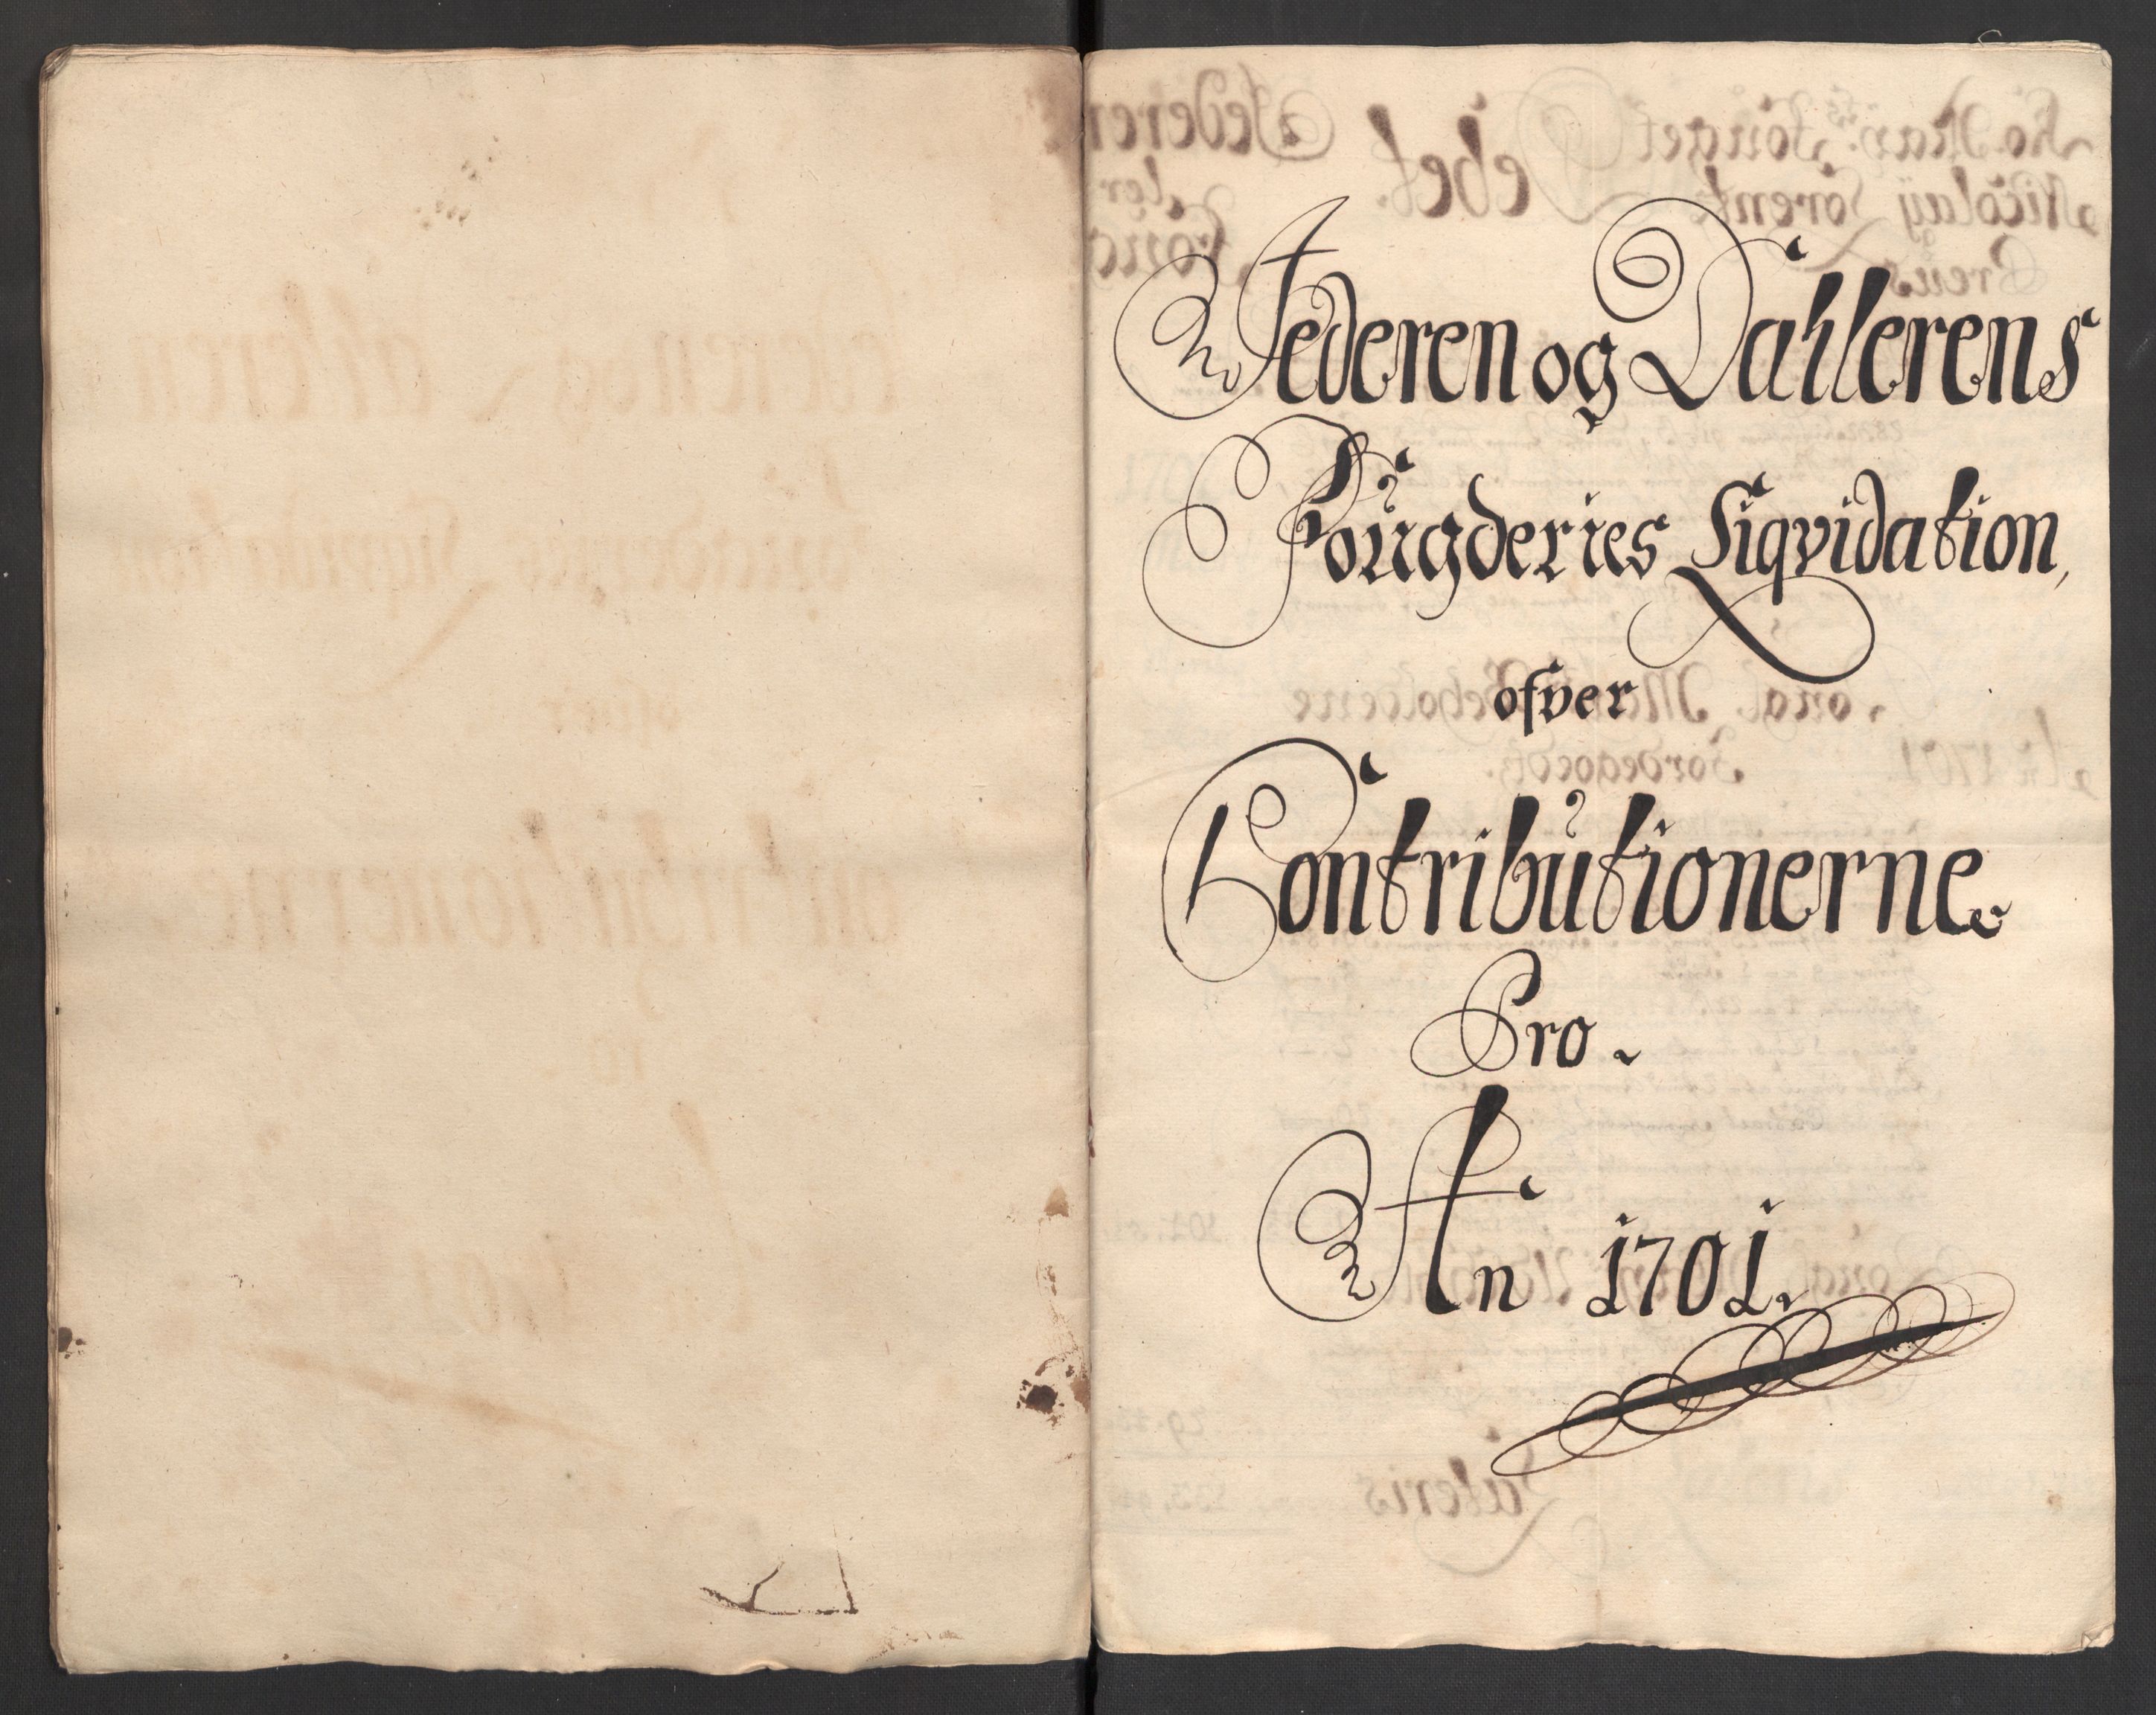 Jederen og Dahlerens
Fougderies Liqvidation,
ofver
Contributionerne
Pro.
An 1701.